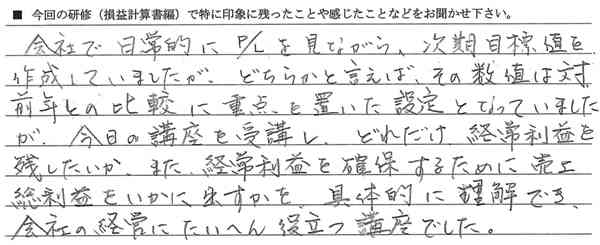 ■ 今回の研修（損益計算書編）で特に印象に残ったことや感じたことなどをお聞かせ下さい。
会社で日常的にP/Lを見ながら、次期目標値を
作成していましたが、どちらかと言えば、その数値は対
前年との比較に重点を置いた設定となっていました
が、今日の講座を受講し、どれだけ経常利益を
残したいか、また、経常利益を確保するために売上
総利益をいかに出すかを、具体的に理解でき、
会社の経営にたいへん役立つ講座でした。